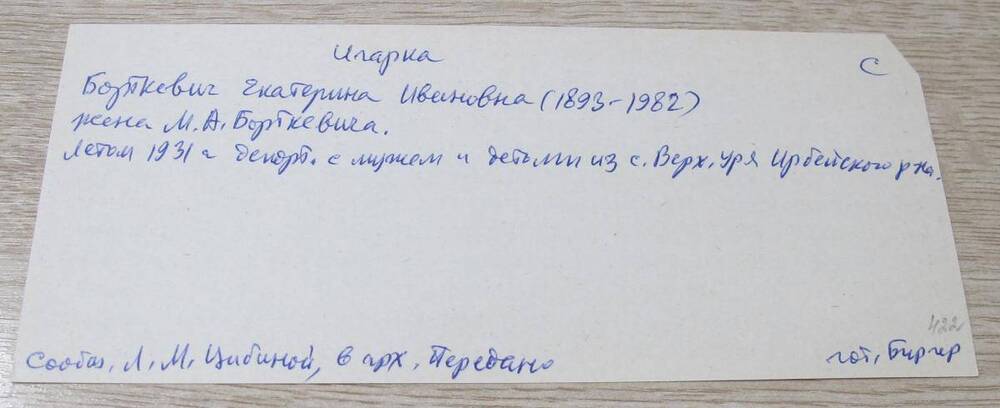 Игарка
С
Борткевич Екатерина Ивановна (1893-1982)
жена М.А. Борткевича.
Летом 1931 г депорт. с мужем и детьми из с. Верх. Уря Ирбейского р-на.
422
Сообщ. Л. М. Цибиной, в арх. Передано
гот. Биргер